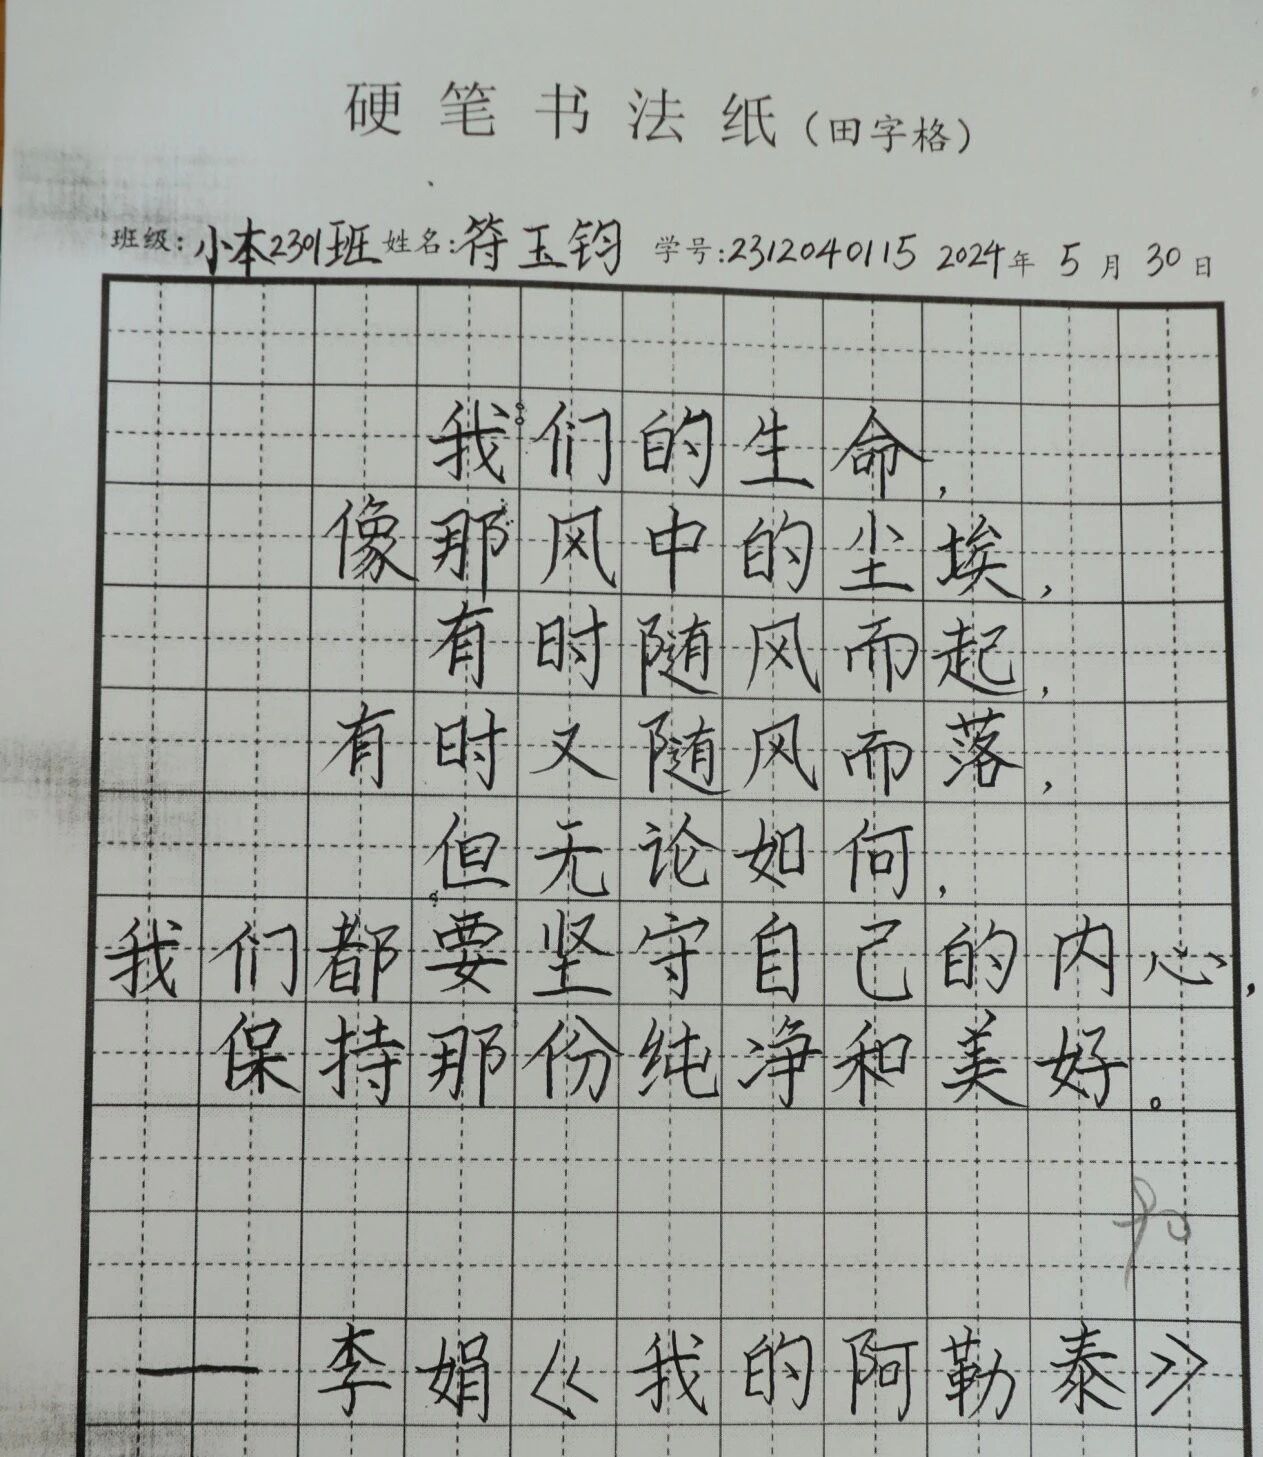 硬笔书法纸（田字格）
班级：小本2301班 姓名：符玉钧 学号：2312040115 2024年5月30日
我们的生命，
像那风中的尘埃，
有时随风而起，
有时又随风而落，
但无论如何，
我们都要坚守自己的内心，
保持那份纯净和美好。
——李娟《我的阿勒泰》